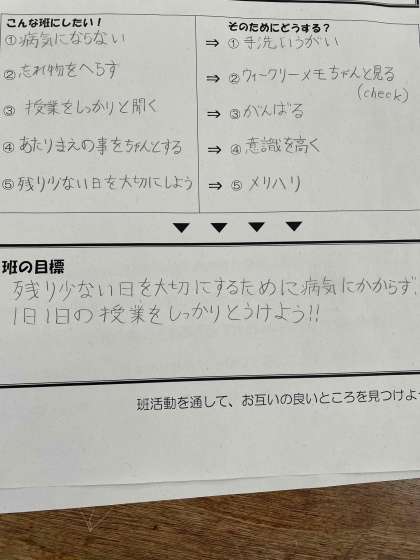 こんな班にしたい！ そのためにどうする？
①病気にならない ⇒ ①手洗いうがい
②忘れ物をへらす ⇒ ②ウィークリーメモちゃんと見る
(check)
③授業をしっかりと聞く ⇒ ③がんばる
④あたりまえの事をちゃんとする ⇒ ④意識を高く
⑤残り少ない日を大切にしよう ⇒ ⑤メリハリ
▼ ▼ ▼ ▼
班の目標
残り少ない日を大切にするために病気にかからず、
1日1日の授業をしっかりとうけよう!!
班活動を通して、お互いの良いところを見つけよ